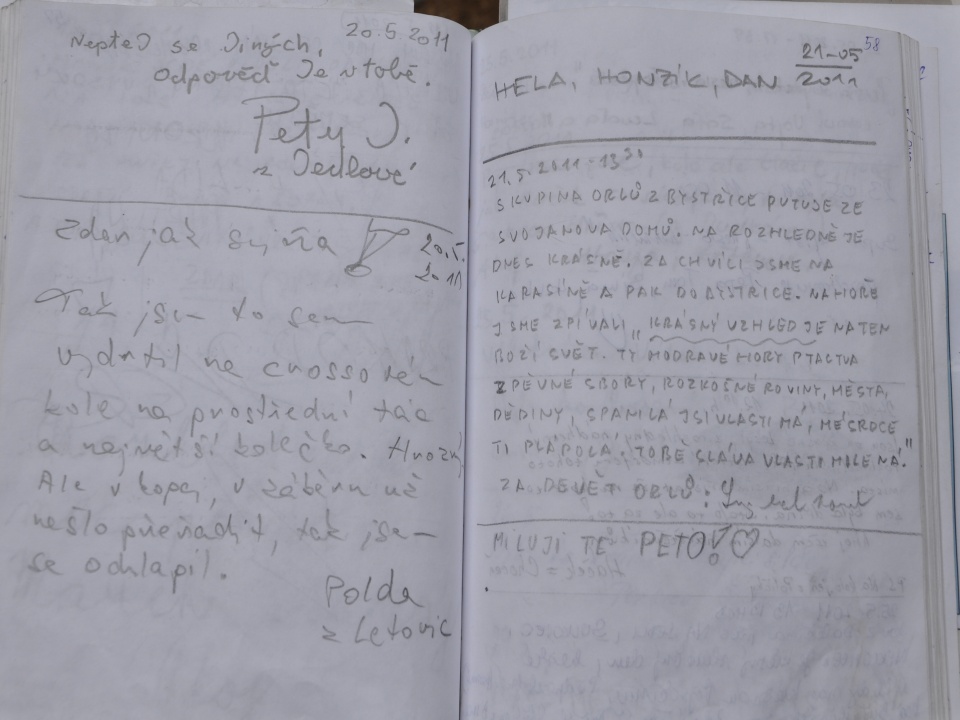 20.5.2011
Neptej se Jiných,
odpověď Je v tobě.
Pety J.
z Jedlové
Zdar jak svině
20.5.
2011
Tak jsem to sem
vydrtil na crossovém
kole na prostřední tác
a největší kolečko. Hrozný
Ale v kopci, v záběru už
nešlo přeřadit, tak jsem
se odklapil.
Polda
z Letovic
58
21-05
2011
HELA, HONZÍK, DAN
21.5.2011 - 13 30
SKUPINA ORLŮ Z BYSTŘICE PUTUJE ZE
SVOJANOVA DOMŮ. NA ROZHLEDNĚ JE
DNES KRÁSNĚ. ZA CHVÍLI JSME NA
KARASÍNĚ A PAK DO BYSTŘICE. NAHOŘE
JSME ZPÍVALI „KRÁSNÝ VZHLED JE NA TEN
BOŽÍ SVĚT. TY MODRAVÉ HORY PTACTVA
ZPĚVNÉ SBORY, ROZKOŠNÉ ROVINY, MĚSTA,
DĚDINY, SPANILÁ JSI VLASTI MÁ, MÉ SRDCE
TI PLÁPOLÁ. TOBĚ SLÁVA VLASTI MILENÁ."
ZA DEVĚT ORLŮ:
MILUJI TĚ PETO!